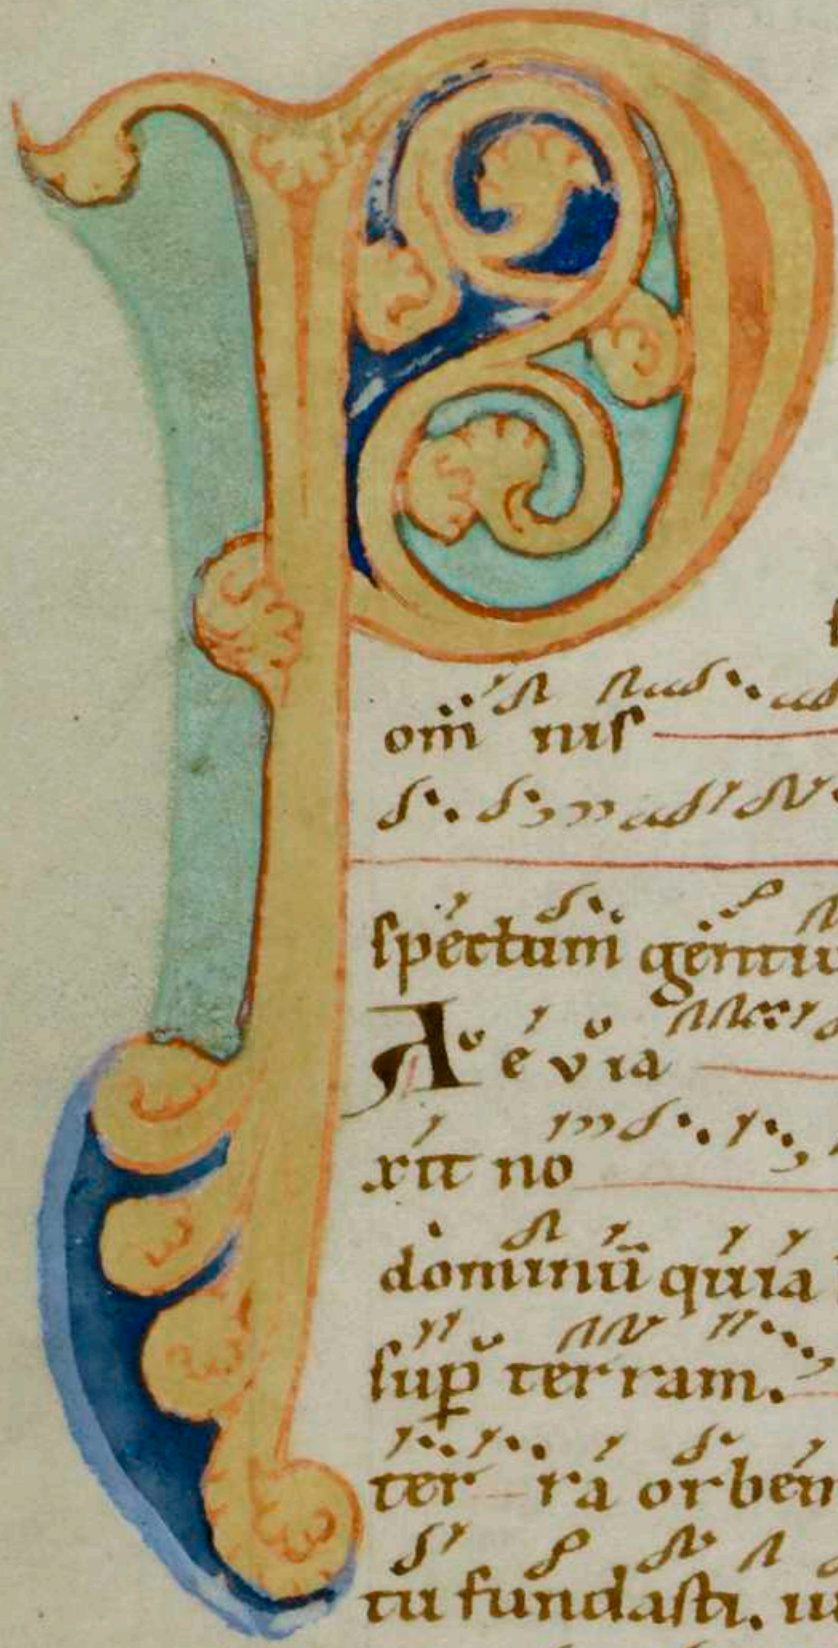 P
om̅ nıſ
ſpectum gentiu
A e v ia
xit no
dominū quia
ſup̱ ter ram.
ter ra orbem
tu fundaſti.